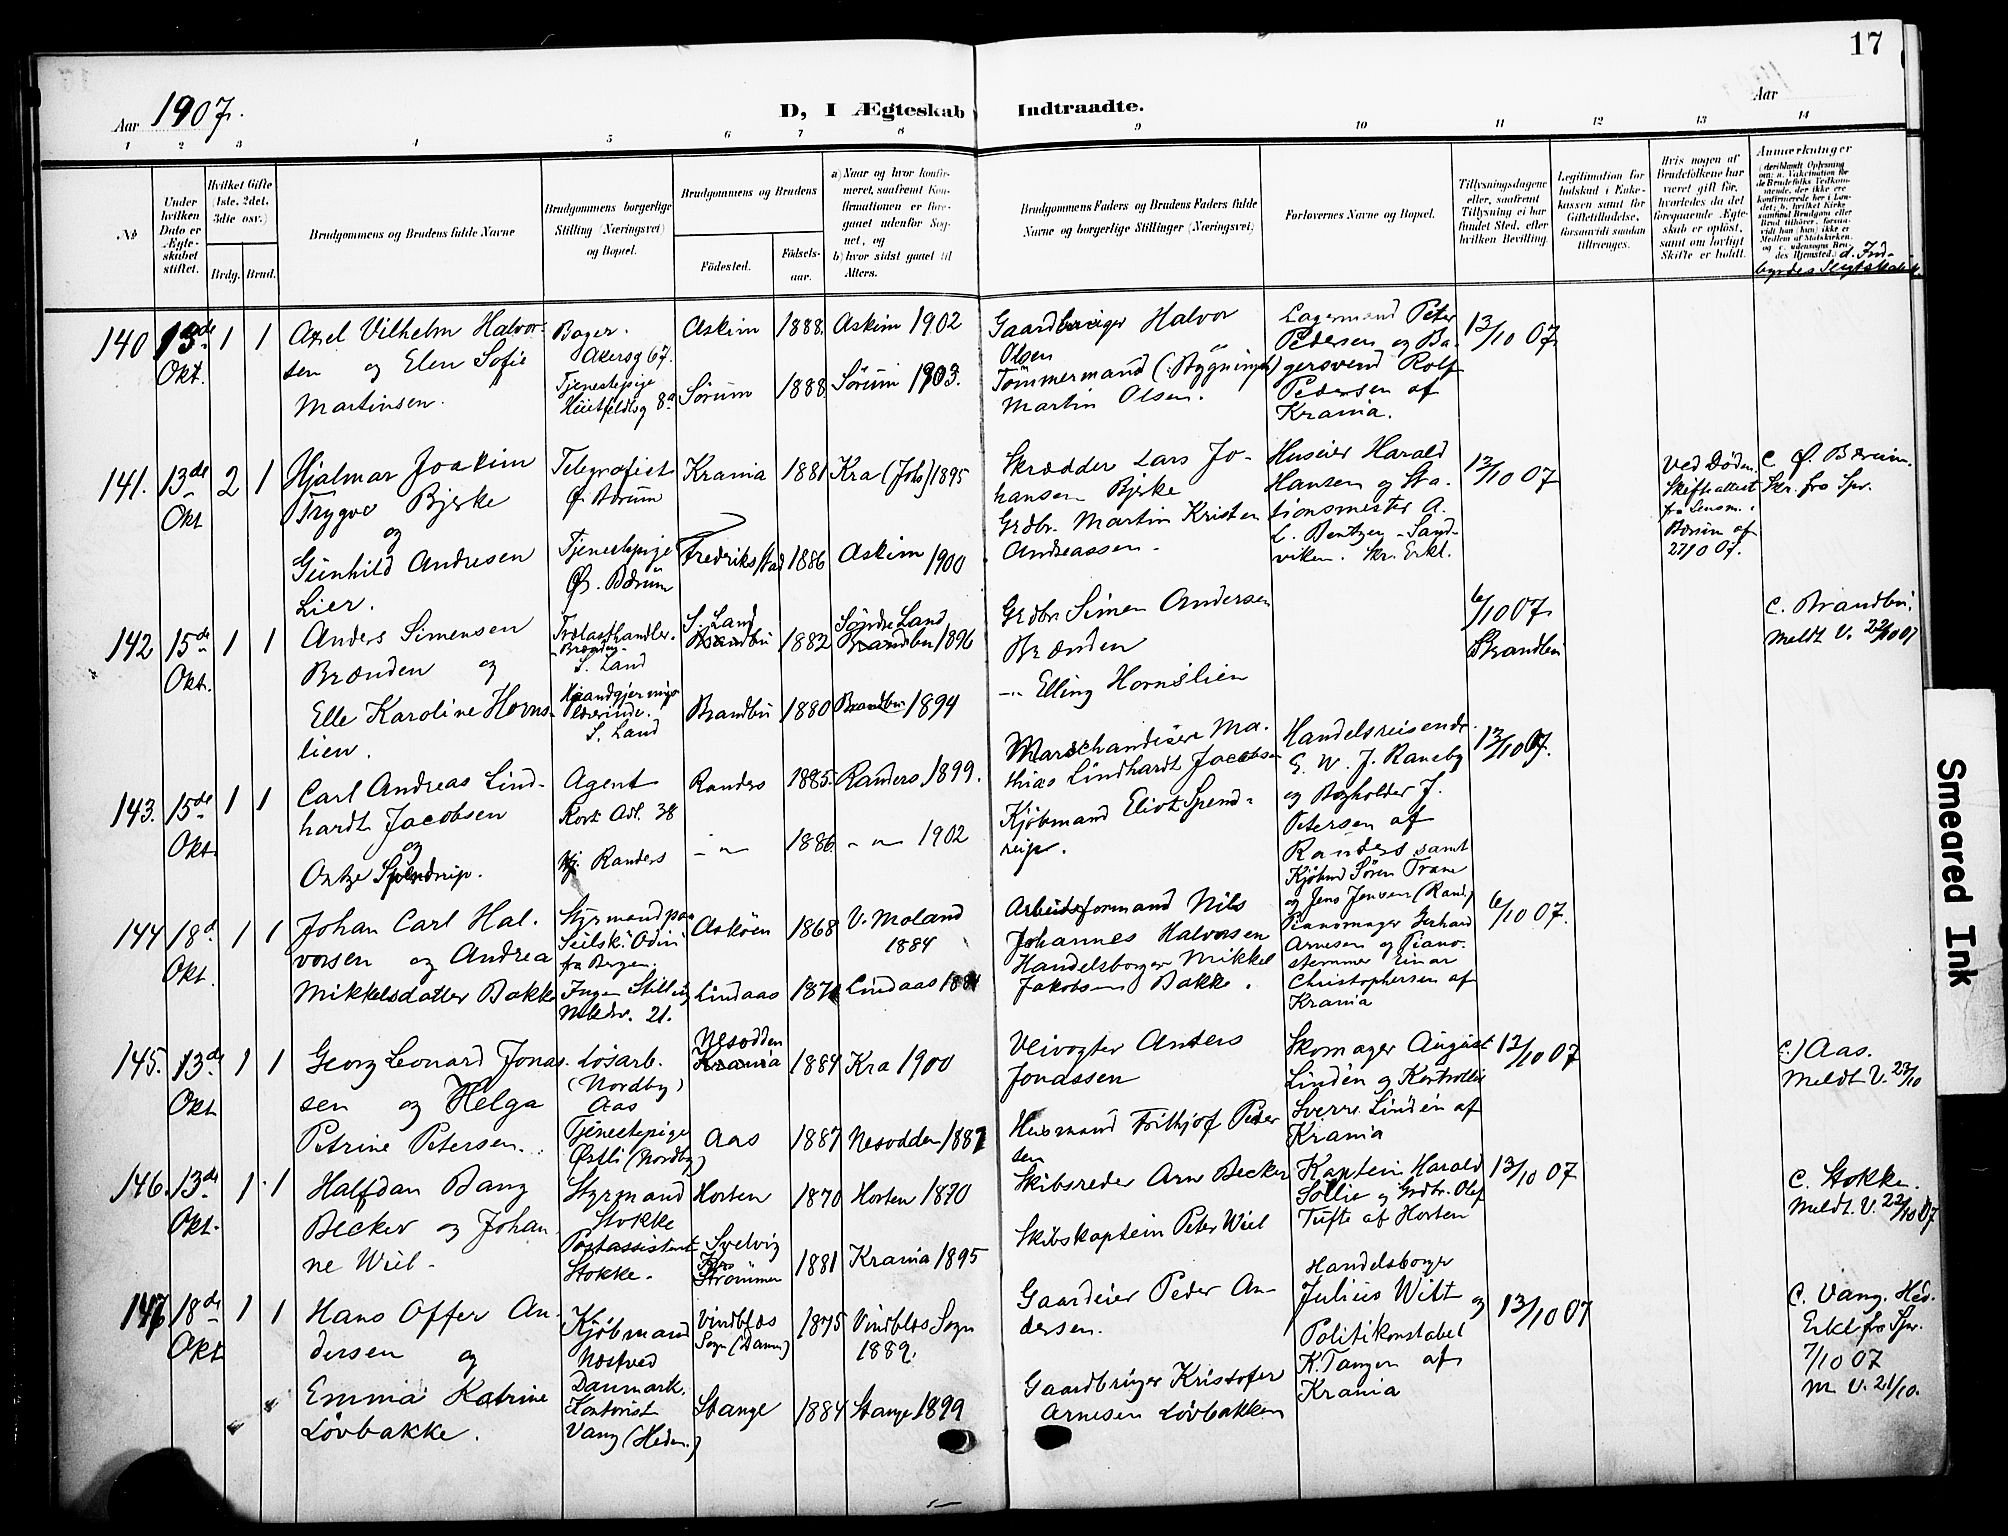 17
Aar 1907.
D, I Ægteskab Indtraadte.
Aar
1 2 3 4 5 6 7 8 9 10 11 12 13 14
No
Under hvilken Dato er Ægteskabet stiftet.
Hvilket Gifte (1ste, 2det, 3die osv.)
Brdg. Brud.
Brudgommens og Brudens fulde Navne
Brudgommens borgerlige Stilling (Næringsvei) og Bopæl.
Brudgommens og Brudens
Födested. Födsels-aar.
a) Naar og hvor konfirmeret, saafremt Konfirmationen er foregaaet udenfor Sognet, og
b) hvor sidst gaaet til Alters.
Brudgommens Faders og Brudens Faders fulde Navne og borgerlige Stillinger (Næringsvei)
Forlovernes Navne og Bopæl.
Tillysningsdagene eller, saafremt Tillysning ei har fundet Sted, efter hvilken Bevilling.
Legitimation for Indskud i Enkekassen samt for Giftetilladelse, forsaavidt saadan tiltrænges.
Hvis nogen af Brudefolkene har været gift før, hvorledes da det foregaaende Ægteskab er opløst, samt om lovligt Skifte er holdt.
Anmærkninger
140 13de Okt. 1 1
Axel Vilhelm Halvor-
sen og Elen Sofie
Martinsen.
Bager.
Akersg 67.
Tjenestepige
Huitfeldtsg 8a
Askim 1888. Askim 1902
Sørum 1888 Sørum 1903.
Gaardbruger Halvor
Olsen
Tømmermand (Bygnings)
Martin Olsen.
Lagermand Peter
Pedersen og Ba-
gersvend Rolf
Pedersen af
Krania.
13/10 07
141. 13de Okt 2 1
Hjalmar Joakim
Trygve Bjerke
og
Gunhild Andresen
Lier.
Telegrafist
Ø. Bærum
Tjenestepige
Ø. Bærum
Krania 1881 Kra (Johs) 1895
Fredrikstad 1886 Askim 1900
Skrædder Lars Jo-
hansen Bjerke
Grdbr. Martin Kristen
Andreassen
Huseier Harald
Hansen og Sta-
tionsmester A.
L. Bentzen Sand-
viken. Skr. Erkl.
13/10 07
Ved Døden.
Skifteattest
fra Lensm. i
Bærum af
27/10 07.
C. Ø. Bærum.
Skr. fra Spr.
142 15de Okt. 1 1
Anders Simensen
Brænden og
Elle Karoline Horns-
lien.
Trælasthandler
Brænden
S. Land
Haandgjernings
lærerinde.
S. Land
S. Land
Brandbu 1882
Søndre Land
Brandbu 1896
Brandbu 1880 Brandbu 1894
Grdbr Simen Andersen
Brænden
-"- Elling Hornslien
6/10 07
Brandbu
C. Brandbu.
Meldt V. 22/10 07
143. 15de Okt. 1 1
Carl Andreas Lind-
hardt Jacobsen
og
Spendrup.
Agent
Kort Adl. 38
Randers
Randers 1885. Randers 1899.
-"- 1886 -"- 1902
Marschandiser Ma-
thias Lindhardt Jacobsen
Kjøbmand Eliot Spend-
rup.
Handelsreisende
E. W. J. Raneby
og Bogholder J.
Petersen af
Randers samt
Kjøbmd Søren Trane
og Jens Jensen (Rand.)
13/10 07.
144 18d. Okt 1 1
Johan Carl Hal-
vorsen og Andrea
Mikkelsdatter Bakke
Styrmand paa
Seilsk. Odin
fra Bergen.
Ingen Stilling
21.
Askøen 1868 V. Moland
1884
Lindaas Lindaas
Arbeidsformand Nils
Johannes Halvorsen
Handelsborger Mikkel
Jakobsen Bakke.
Pianomager Gerhard
Arnesen og Piano-
stemmer Einar
Christophersen af
Krania
6/10 07.
145. 13de Okt 1 1
Georg Leonard Jonas-
sen og Helga
Petrine Petersen.
Løsarb.
(Nordby)
Aas
Tjenestepige
Østli (Nordby)
Nesodden
Krania 1884 Kra 1900
Aas 1887 Nesodden
Veivogter Anders
Jonassen
Husmand Frithjof Peder
sen
Skomager August
Lindén og Kontrollør
Sverre Lindén af
Krania
13/10 07
C.) Aas.
Meldt V. 22/10
146. 13de Okt. 1 1
Halfdan Bang
Becker og Johan-
ne Wiel
Styrmand
Stokke
Postassistent
Stokke.
Horten 1870 Horten 1870
Svelvig
Strømmen 1881 Krania 1895
Skibsreder Arn Becker
Skibskaptein Peter Wiel
Kaptein Harald
Sollie og Grdbr. Olaf
Tufte af Horten
13/10 07
C. Stokke.
Meldt V. 22/10 07
147 18de Okt 1 1
Hans Offer An-
dersen og
Emma Katrine
Løvbakke.
Kjøbmand
Næstved
Danmark.
Kontorist
Vang (Hedm.)
Vindblæs
Sogn (Danm) 1875 Vindblæs Sogn
1889.
Stange 1884 Stange 1899
Gaardeier Peder An-
dersen.
Gaardbruger Kristofer
Arnesen Løvbakken
Handelsborger
Julius Witt og
Politikonstabel
K. Tangen af
Krania
13/10 07
C. Vang. Hed.
Erkl fra Spr.
7/10 07
M V. 21/10.
Smeared Ink